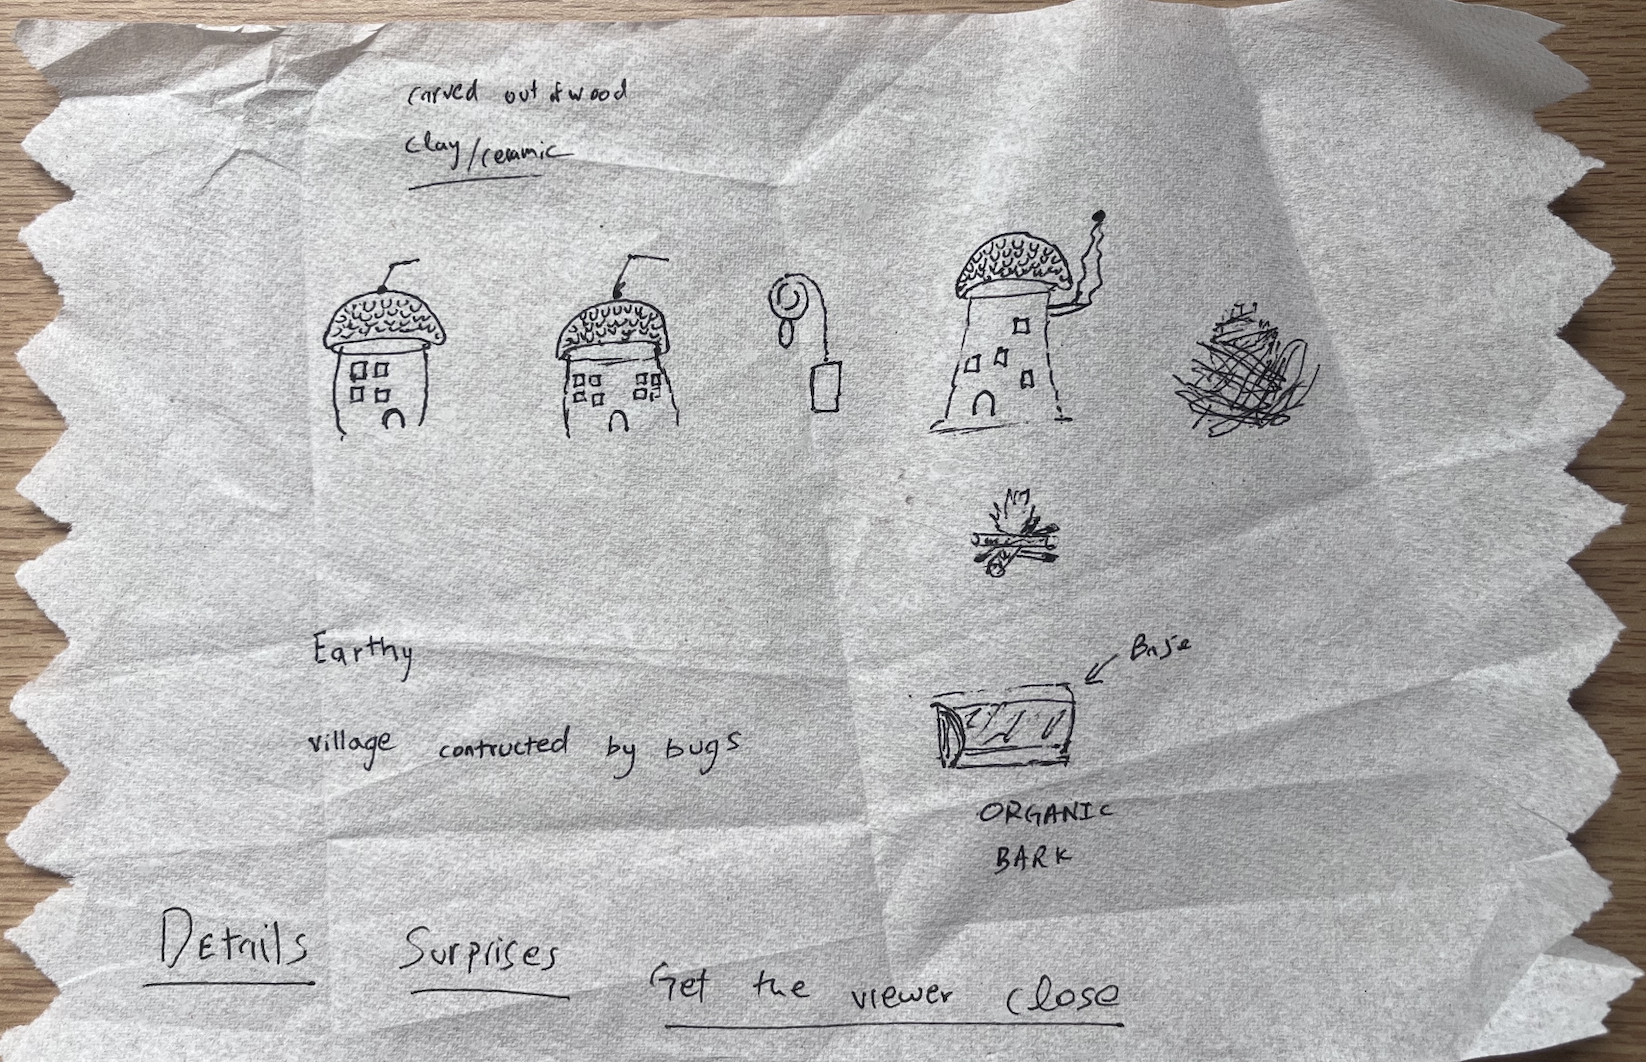 carved out of wood
clay/ceramic
Earthy
Base
village contructed by bugs
ORGANIC
BARK
Details Surprises Get the viewer close